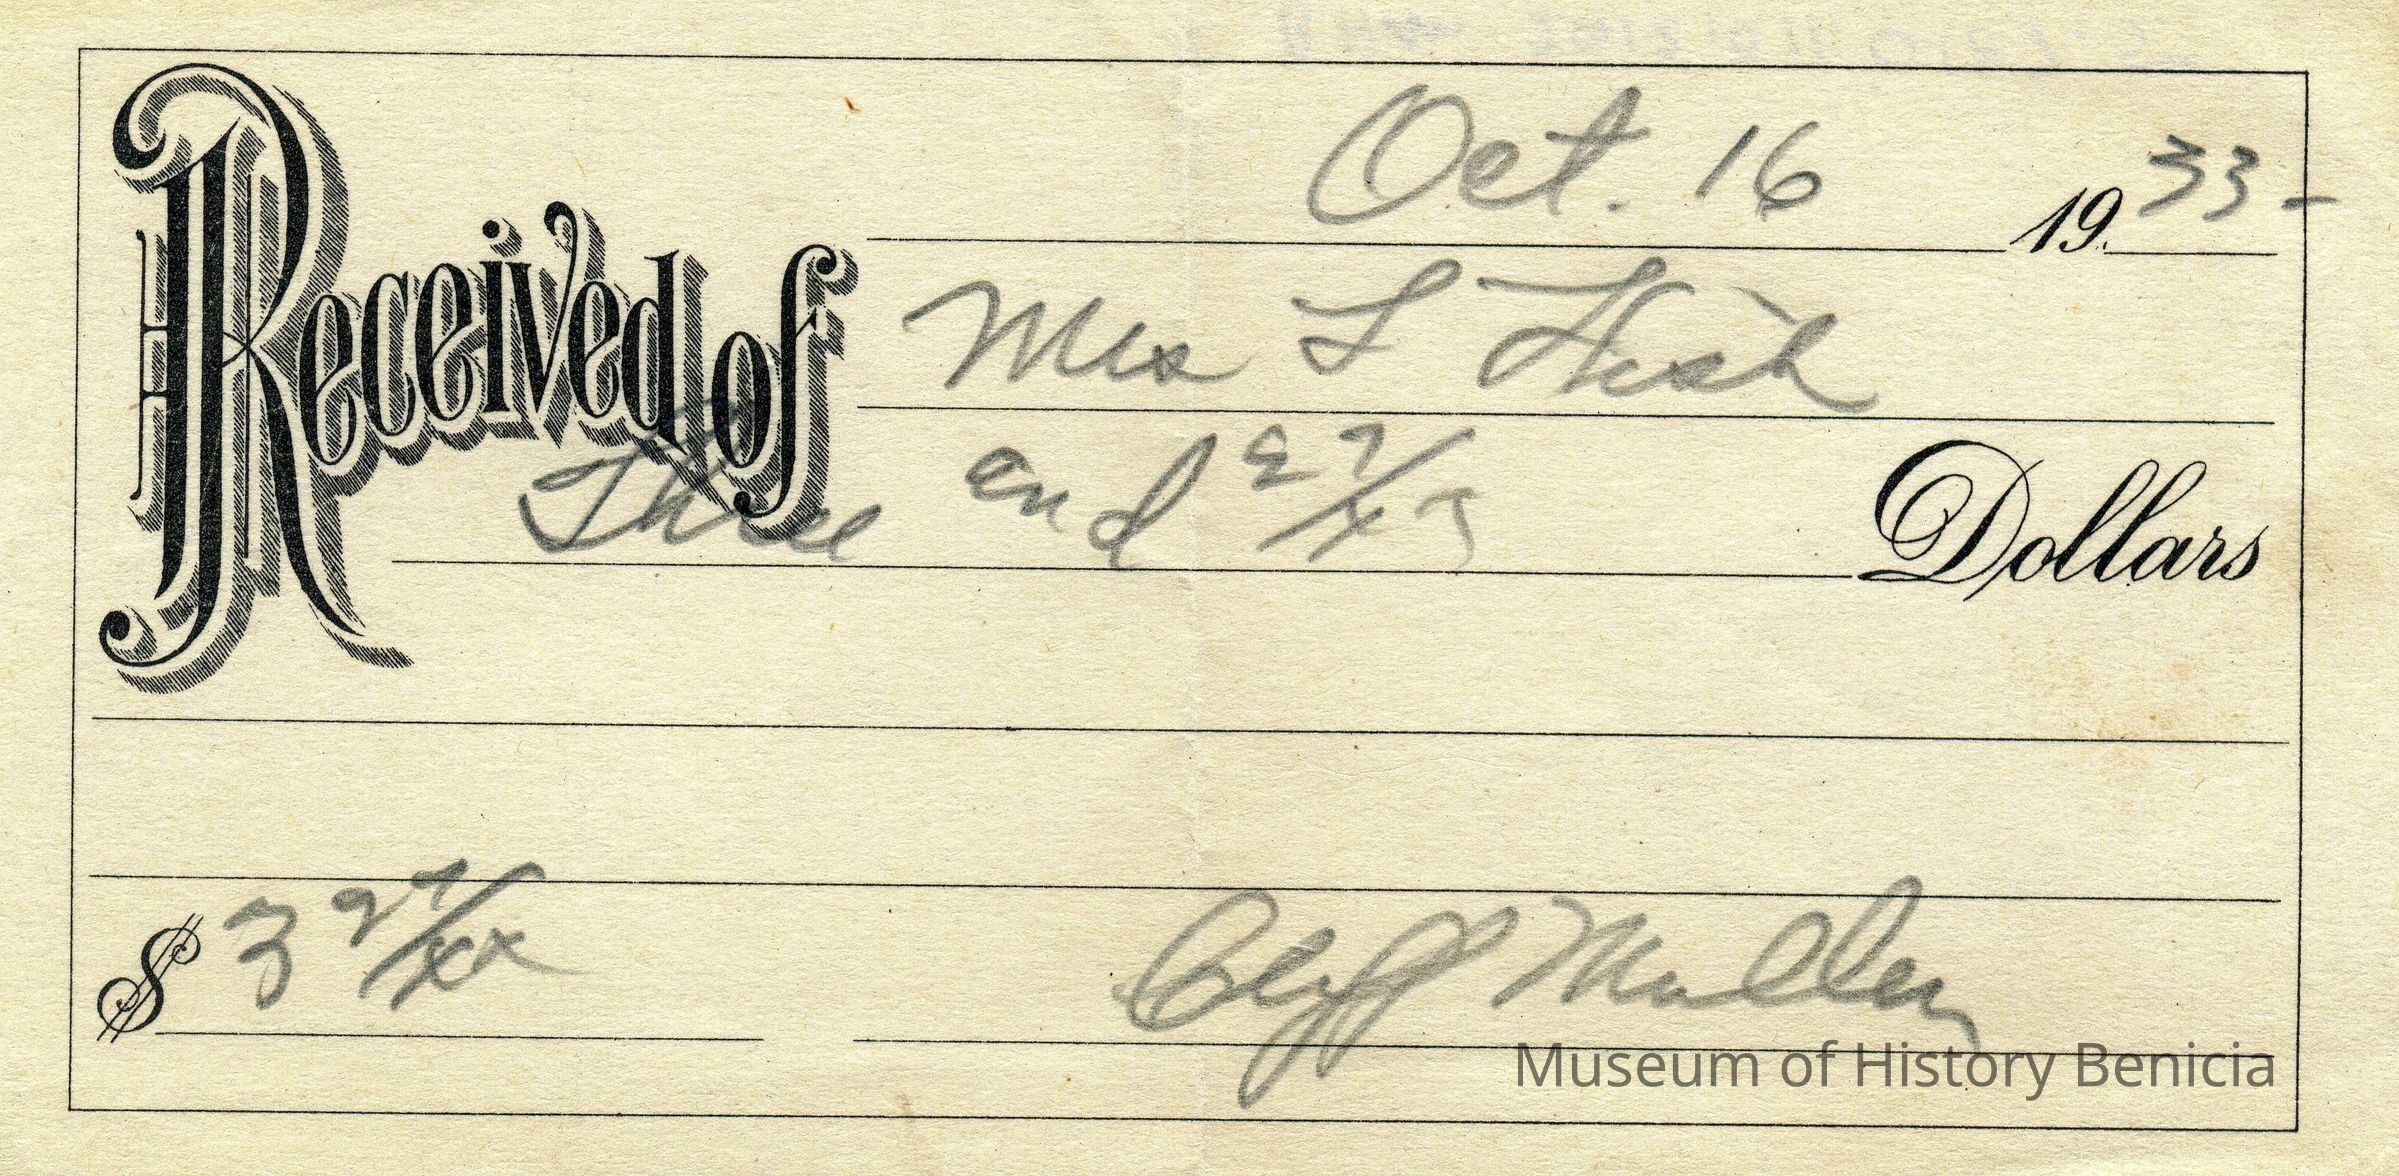 Oct. 16 1933-
Received of Mrs L Fish
Three and 27/xx Dollars
$ 3 27/xx Cliff Mullen
Museum of History Benicia